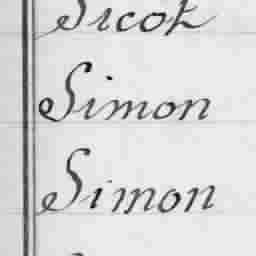 Sicot
Simon
Simon